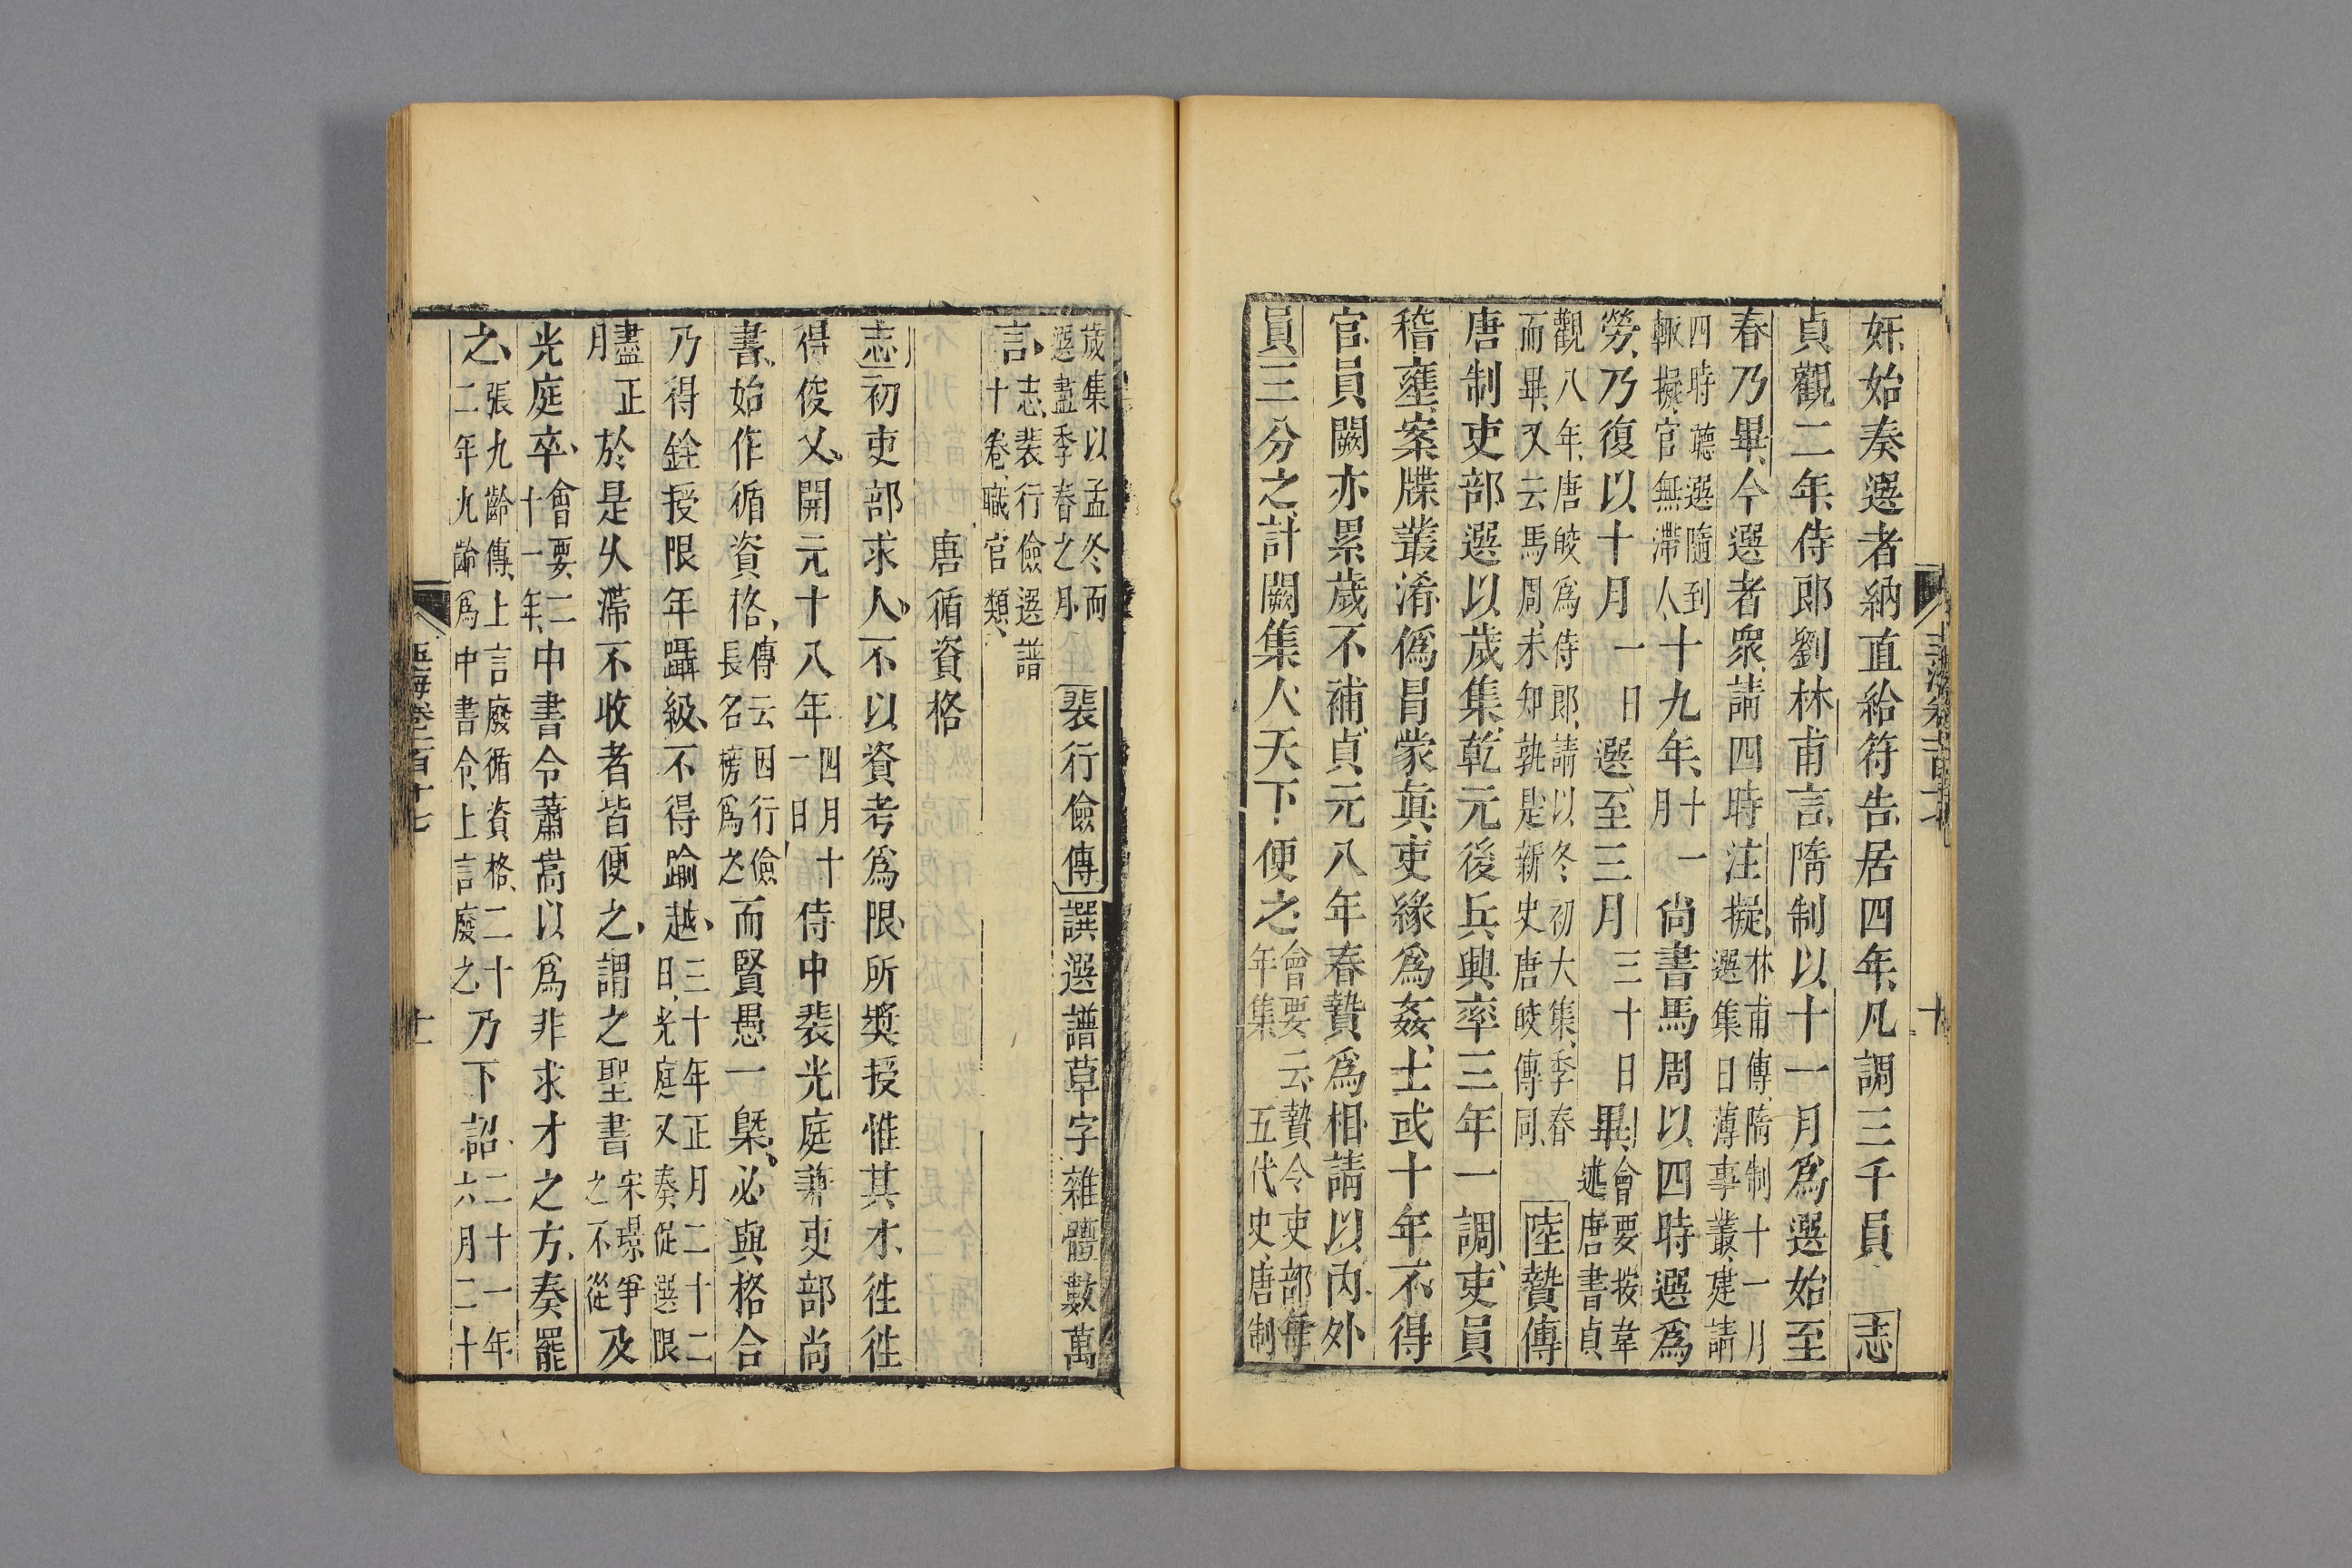 奸始奏選者納直給符告居四年凡調三千員志
貞觀二年侍郎劉林甫言隋制以十一月爲選始至
春乃畢今選者衆請四時注擬林甫傳隋制十一月
選集日薄事叢建請
四時聽選隨到
輒擬官無滯人十九年十一
月尚書馬周以四時選爲
勞乃復以十月一日選至三月三十日畢會要按韋
述唐書貞
觀八年唐皎爲侍郎請以冬初大集季春
而畢又云馬周未知孰是新史唐皎傳同陸贄傳
唐制吏部選以歲集乾元後兵興率三年一調吏員
稽壅案牒叢淆僞冒蒙眞吏緣爲姦士或十年不得
官員闕亦累歲不補貞元八年春贄爲相請以內外
員三分之計闕集人天下便之會要云贄令吏部每
年集 五代史唐制
歲集以孟冬而
選盡季春之月裴行儉傳譔選譜草字雜體數萬
言志裴行儉選譜
十卷職官類
唐循資格
志初吏部求人不以資考爲限所奬授惟其才往往
得俊乂開元十八年四月十
一日侍中裴光庭兼吏部尚
書始作循資格傳云因行儉
長名榜爲之而賢愚一槩必與格合
乃得銓授限年躡級不得踰越三十年正月二十二
日光庭又奏促選限
盡正
月於是久滯不收者皆便之謂之聖書宋璟爭
之不從及
光庭卒會要二
十一年中書令蕭嵩以爲非求才之方奏罷
之張九齡傳上言廢循資格二十
二年九齡爲中書令上言廢之乃下詔二十一年
六月二十
玉海卷一百十七
十一